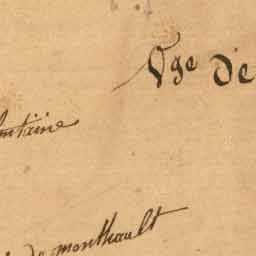 Vge de
ntaine
de monthault